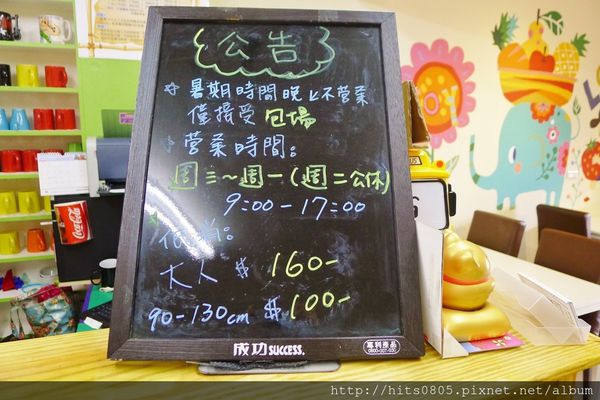 公告
☆暑期時間晚上不營業
僅接受包場
☆營業時間：
週三～週一(週二公休)
9:00-17:00
低消：
大人 $160-
90-130cm $100-
成功 SUCCESS.
專利產品
0800-007-030
Coca-Cola
http://hits0805.pixnet.net/album